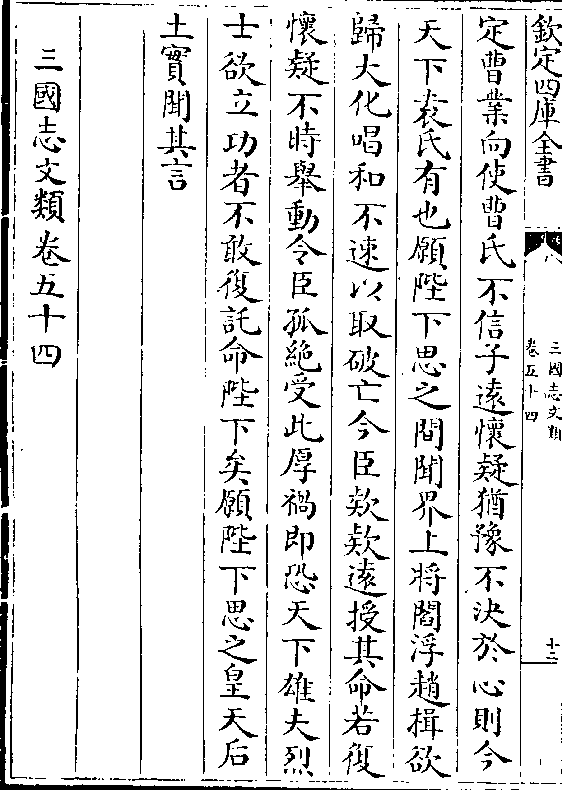 欽定四庫全書
三國志文類
卷五十四
十三
定曹業向使曹氏不信子遠懷疑猶豫不決於心則今
天下袁氏有也願陛下思之間聞界上將閻浮趙揖欲
歸大化唱和不速以取破亡今臣欵欵遠授其命若復
懷疑不時舉動令臣孤絶受此厚禍即恐天下雄夫烈
士欲立功者不敢復託命陛下矣願陛下思之皇天后
土實聞其言
三國志文類卷五十四